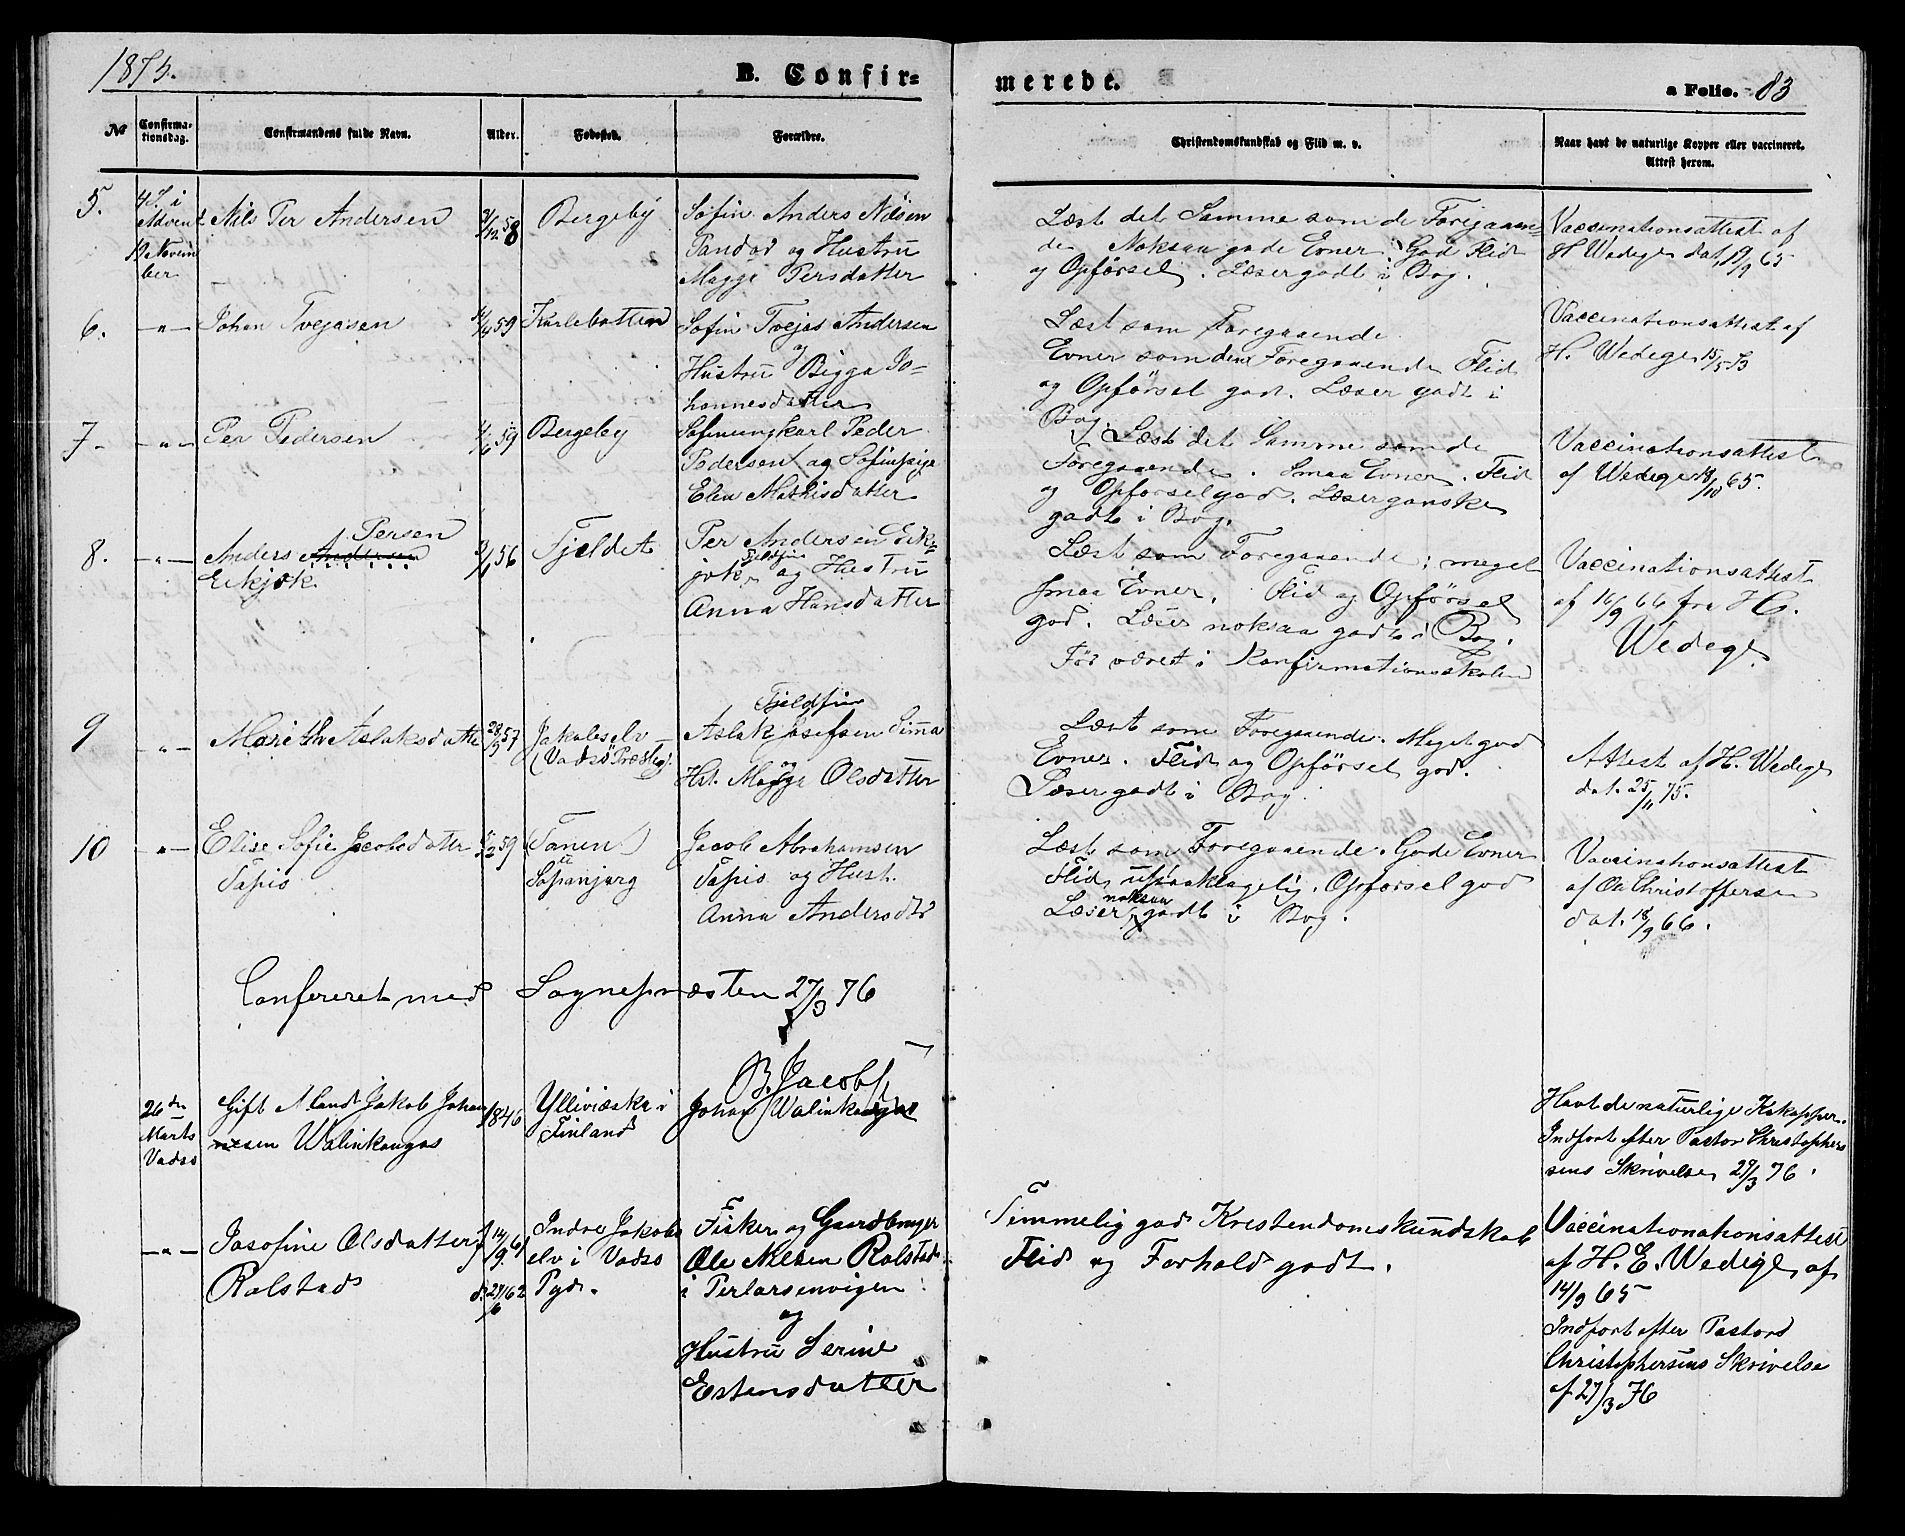 1875.
B. Confir=
merede.
a Folio. 83
No
Confirma-
tionsdag.
Confirmandens fulde Navn.
Alder.
Fødested.
Forældre.
Christendomskundskab og Flid m. v.
Naar havt de naturlige Kopper eller vaccineret.
Attest herom.
5.
4 S. i
Advent
19 Novem
ber
Nils Per Andersen
58
Bergeby
Søfin Anders Nilsen
og Hustru
Magga Persdatter
Læst det Samme som de Foregaaen-
de Noksaa gode Evner. God Flid
og Opførsel. Læser godt i Bog.
Vaccinationsattest af
H Wedege dat. 19/9 65
6.
-"-
Johan Tvejasen
59
Karlebotten
Søfin Tvejas Andersen
og
Hustru Bigga Jo-
hannesdatter
Læst som Foregaaende.
Evner som den Foregaaende Flid
og Opførsel god. Læser godt i
Bog.
Vaccinationsattest af
H. Wedege 15/5 73
7-
-"-
Per Pedersen
59
Bergeby
Søfinungkarl Peder
Pedersen og Søfinpige
Elen Mathisdatter
Læst det Samme som de
Foregaaende. Smaa Evner. Flid
og Opførsel god. Læser ganske
godt i Bog.
Vaccinationsattest
af Wedege 18/10 65.
8.
-"-
Persen
Anders Andersen
Eikjok
56
Fjeldet
Per Andersen Eik-
jok, Fjeldfin og Hustru
Anna Hansdatter
Læst som Foregaaende; meget
smaa Evner. Flid og Opførsel
god. Læser noksaa godt i Bog.
Før været i Konfirmationsskolen
Vaccinationsattest
af 16/9 66 fra H.
Wedege
9
-"-
Marith Aslaksdatter
28/9 57
Jakobselv
(Vadsø Præstegj.
Fjeldfin
Aslak Josefsen Simma
og
Hst. Magga Olsdatter
Læst som Foregaaende. Meget god
Evner. Flid og Opførsel god.
Læser godt i Bog.
Attest af H. Wedege
dat. 25/11 75.
10
-"-
Elise Sofie Jacobsdatter
Tapio
5/2 59
(Tanen)
Jacob Abrahamsen
Tapio og Hust.
Anna Andersdtr
Læst som Foregaaende. Gode Evner
Flid upaaklagelig. Opførsel god
Læser noksaa godt i Bog.
Vaccinationsattest
af Ole Christoffersen
dat. 18/9 66.
Confereret med Sognepræsten 27/3 76
B. Jacobs.
26de
Marts
Vadsø
Gift Mand Jakob Johan
nesen Walinkangas
1846
Ylliviæska i
Finland
Johan Walinkangas
Havt de naturlige Kokopper.
Indført efter Pastor Christopher
sens Skrivelse 27/3 76.
-"-
Josofine Olsdatter
Rolstad
f 14/9 61
d. 27/6 62
Indre Jakobs
elv i Vadsø
Pgd.
Fisker og Gaardbruger
Ole Nilsen Rolstad
i Perlarsenvigen
og
Hustru Serine
Estensdatter
Temmelig god Kristendomskundskab
Flid og Forhold godt.
Vaccinationationsattest
af H. E. Wedege af
14/9 65
Indført efter Pastor
Christophersens Skrivelse
af 27/3 76